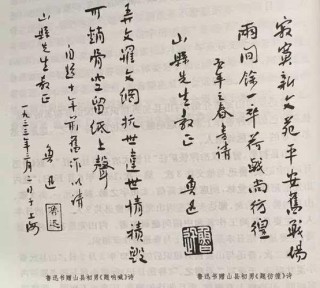 寂寞新文苑平安舊戰場
兩間餘一卒荷戟尚彷徨
酉年之春書請
山縣先生教正 魯迅
弄文罹文網抗世違世情積毀
可銷骨空留紙上聲
自題十年前舊作以請
山縣先生教正 魯迅
一九三三年三月二日于上海
鲁迅书赠山县初男《题呐喊》诗
鲁迅书赠山县初男《题彷徨》诗